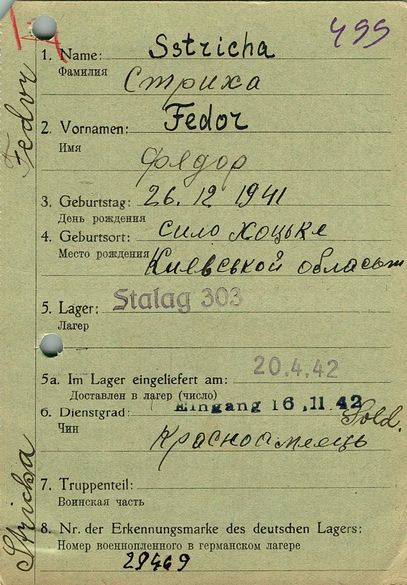 499
1. Name: Sstricha
Фамилия Стриха
2. Vornamen: Fedor
Имя Фядор
3. Geburtstag: 26. 12 1941
День рождения
4. Geburtsort: сило Хоцьке
Место рождения Киевськой область
5. Lager: Stalag 303
Лагер
5a. Im Lager eingeliefert am: 20.4.42
Доставлен в лагер (число)
Eingang 16.11.42
6. Dienstgrad: Sold.
Чин Красноамиець
7. Truppenteil:
Воинская часть
8. Nr. der Erkennungsmarke des deutschen Lagers:
Номер военнопленного в германском лагере
28469
Fedor
Stricha